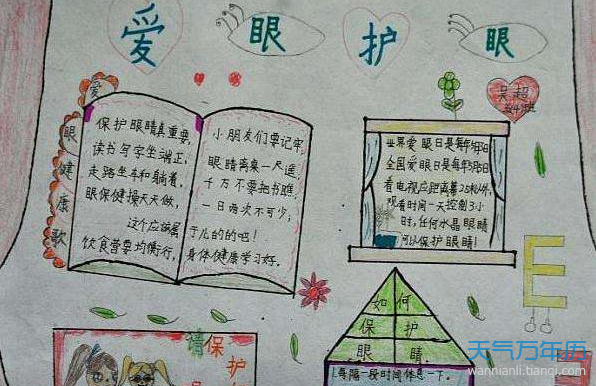 爱 眼 护 眼
爱眼健康歌
保护眼睛真重要,
读书写字坐端正,
走路坐车和躺着,
眼保健操天天做,
这个应该属
饮食营要均衡行,
小朋友们要记牢,
眼睛离桌一尺遥,
千万不要把书瞧,
一日两次不可少;
于儿的的吧!
身体健康学习好.
吴超
世界爱眼日是每年
全国爱眼日是每年
看电视应距离
观看时间一天控制3小
时,任何水晶眼睛
可以保护眼睛!
E
如何
保护
眼睛
1.每隔一段时间休息一下.
请保护
天气万年历
wannianli.tianqi.com